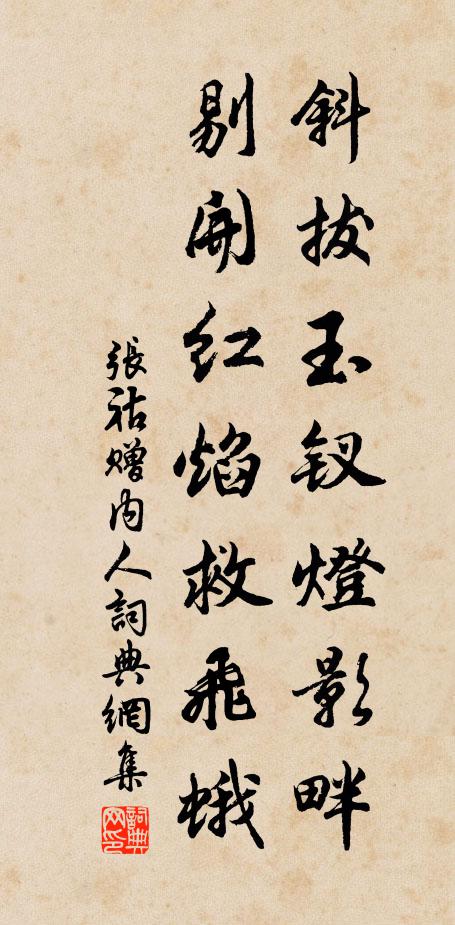 斜拔玉釵燈影畔
剔開紅焰救飛蛾
張祜贈內人詞典網集
詞典网印